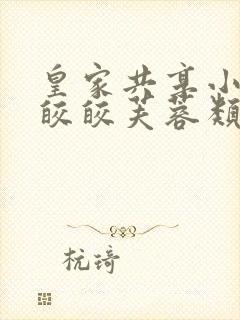 皇家共享小
皎皎芙蓉颜
杭琦